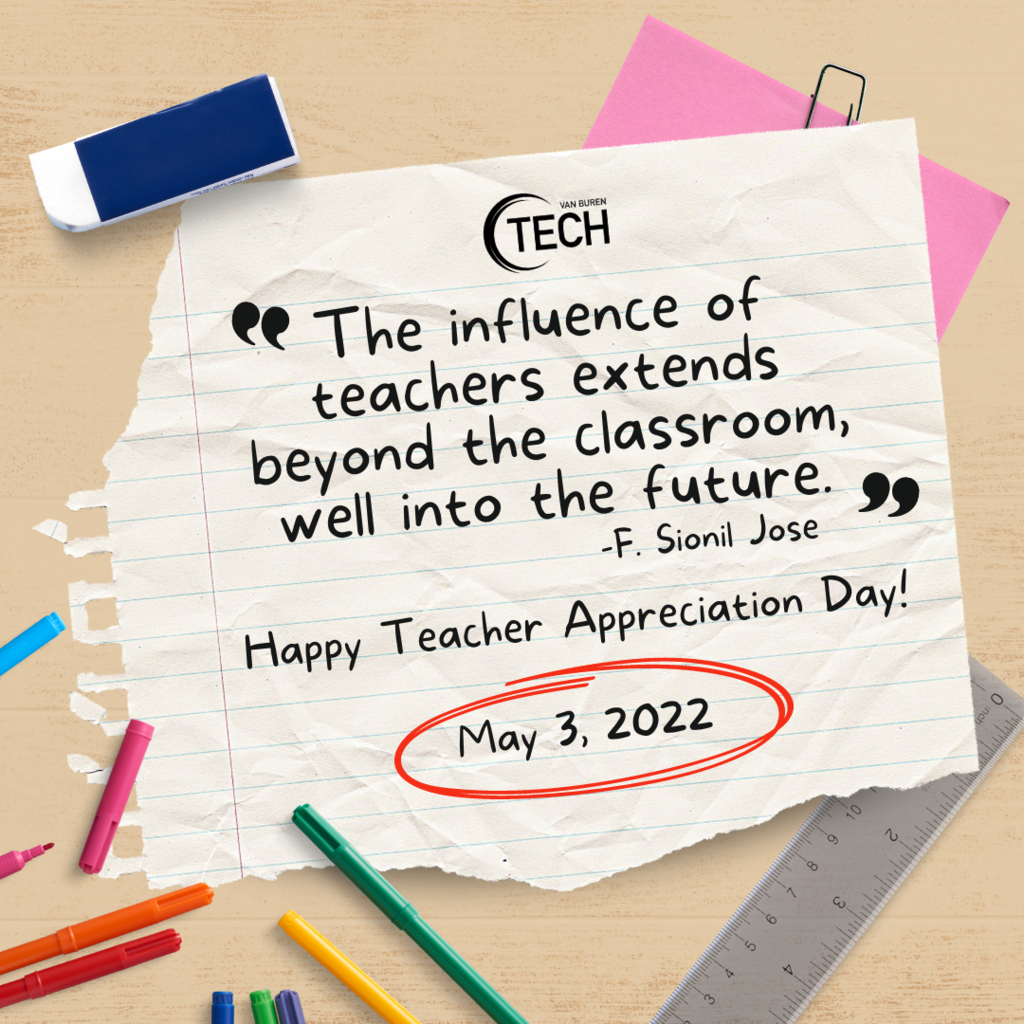 VAN BUREN
TECH
“ The influence of
teachers extends
beyond the classroom,
well into the future. ”
-F. Sionil Jose
Happy Teacher Appreciation Day!
May 3, 2022
inch
0
10
9
8
7
6
5
4
3
2
3
4